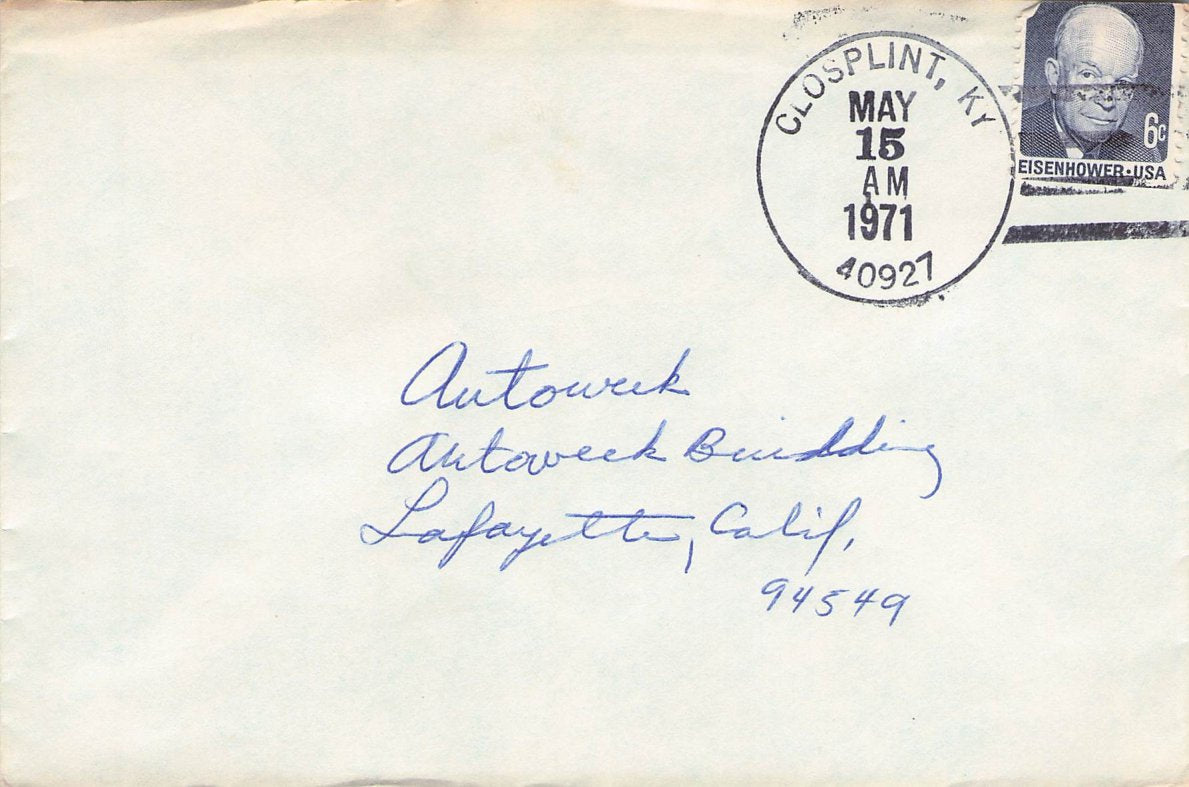 CLOSPLINT, KY
MAY
15
AM
1971
40927
6c
EISENHOWER·USA
Autoweek
Autoweek Building
Lafayette, Calif,
94549